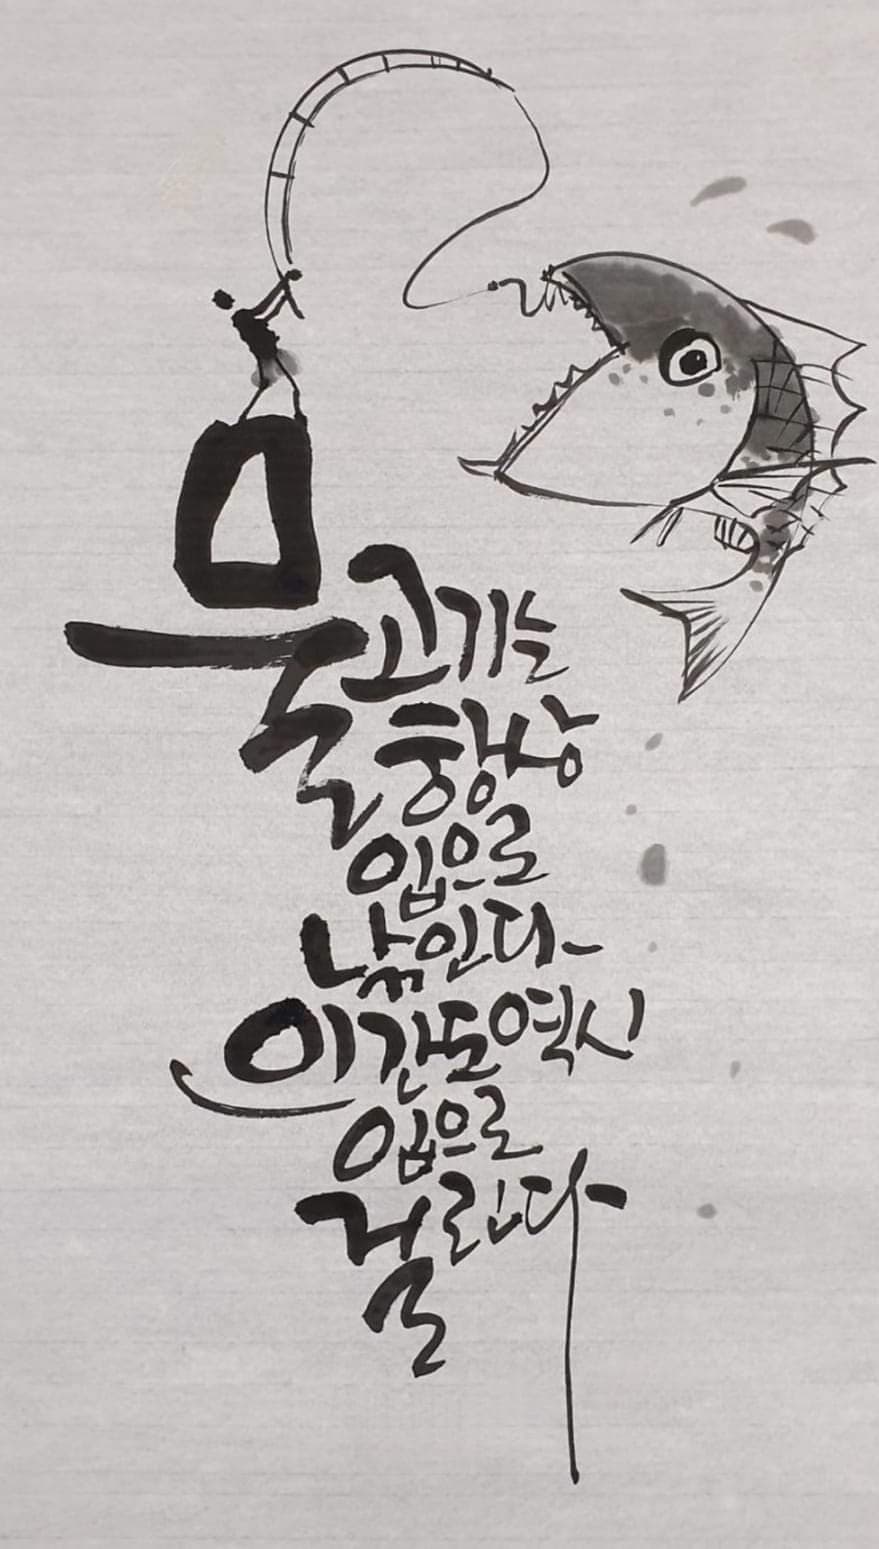 물고기는
항상
입으로
낚인다
인간도 역시
입으로
걸린다